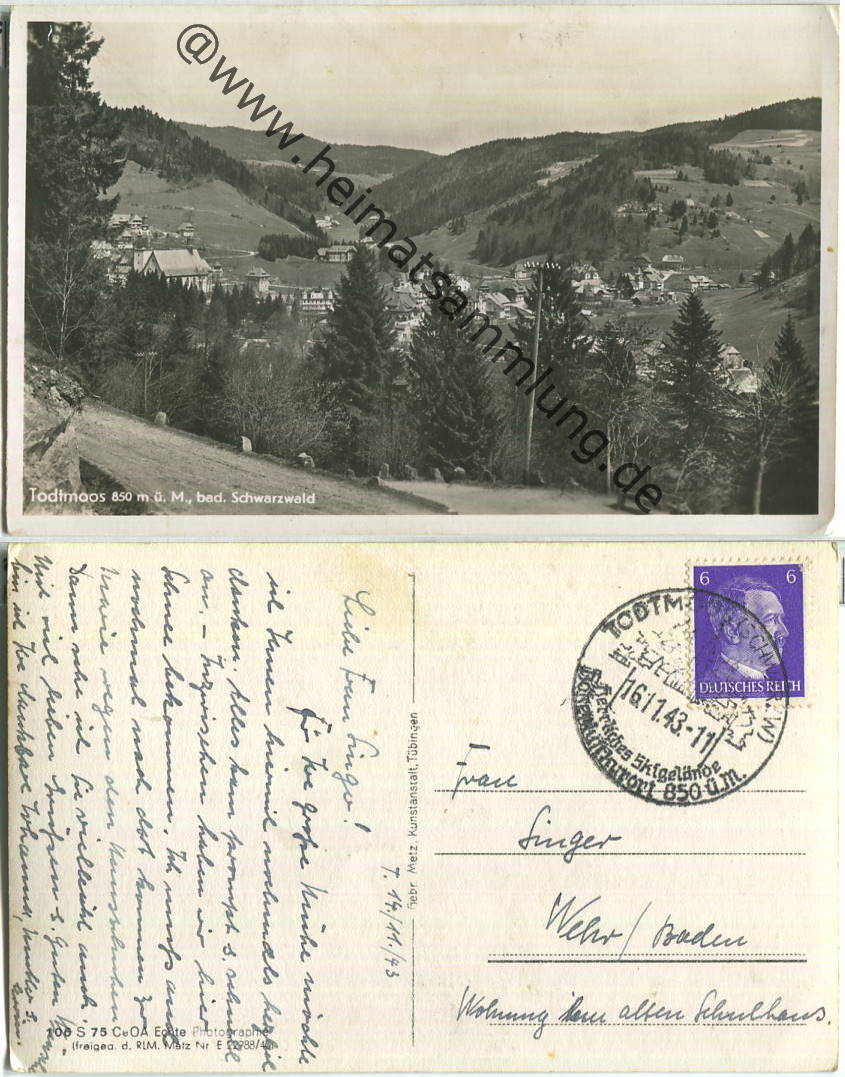 @www.heimatsammlung.de
Todtmoos 850 m ü. M., bad. Schwarzwald
T. 14/11./43
Liebe Frau Singer!
Für Ihre große Mühe möchte
ich Ihnen hiermit nochmals herzlich
danken. Alles kam prompt & schnell
an. – Inzwischen haben wir hier
Schnee bekommen. Ich muß auch
nochmal nach dort kommen zu
wegen den
Dann sehe ich Sie vielleicht auch.
Mit viel lieben Grüßen & Guten
bin ich Ihr dankbare
106 S 75 CeOA Echte Photographie
(freigeg. d. RLM. Metz Nr. E 22988/42)
Gebr. Metz, Kunstanstalt, Tübingen
6 6
DEUTSCHES REICH
TODTMOOS (SCHWARZW)
16.11.43-11
Herrliches Skigelände
Höhenluftkurort 850 ü.M.
Frau
Singer
Wehr/Baden
Wohnung im alten Schulhaus.